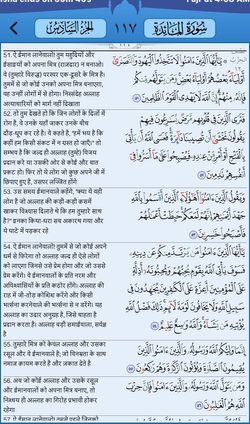 سُورَةُ المَائِدَة
١١٧
الجزء السادس
51. ऐ ईमान लानेवालो! तुम यहूदियों और
ईसाइयों को अपना मित्र (राज़दार) न बनाओ।
वे (तुम्हारे विरुद्ध) परस्पर एक-दूसरे के मित्र हैं।
तुममें से जो कोई उनको अपना मित्र बनाएगा,
वह उन्हीं लोगों में से होगा। निस्संदेह अल्लाह
अत्याचारियों को मार्ग नहीं दिखाता
يَٰٓأَيُّهَا ٱلَّذِينَ ءَامَنُوا۟ لَا تَتَّخِذُوا۟ ٱلْيَهُودَ وَٱلنَّصَٰرَىٰٓ
أَوْلِيَآءَ بَعْضُهُمْ أَوْلِيَآءُ بَعْضٍ وَمَن يَتَوَلَّهُم مِّنكُمْ
فَإِنَّهُۥ مِنْهُمْ إِنَّ ٱللَّهَ لَا يَهْدِى ٱلْقَوْمَ ٱلظَّٰلِمِينَ ٥١
52. तो तुम देखते हो कि जिन लोगों के दिलों में
रोग है, वे उनके यहाँ जाकर उनके बीच
दौड़-धूप कर रहे हैं। वे कहते है, "हमें भय है कि
कहीं हम किसी संकट में न ग्रस्त हो जाएँ।" तो
सम्भव है कि जल्द ही अल्लाह (तुम्हे) विजय
प्रदान करे या उसकी ओर से कोई और बात
प्रकट हो। फिर तो ये लोग जो कुछ अपने जी में
छिपाए हुए है, उसपर लज्जित होंगे
فَتَرَى ٱلَّذِينَ فِى قُلُوبِهِم مَّرَضٌ يُسَٰرِعُونَ فِيهِمْ
يَقُولُونَ نَخْشَىٰٓ أَن تُصِيبَنَا دَآئِرَةٌ فَعَسَى ٱللَّهُ أَن يَأْتِىَ
بِٱلْفَتْحِ أَوْ أَمْرٍ مِّنْ عِندِهِۦ فَيُصْبِحُوا۟ عَلَىٰ مَآ أَسَرُّوا۟ فِىٓ
أَنفُسِهِمْ نَٰدِمِينَ ٥٢
53. उस समय ईमानवाले कहेंगे, "क्या ये वही
लोग है जो अल्लाह की कड़ी-कड़ी क़समें
खाकर विश्वास दिलाते थे कि हम तुम्हारे साथ
है?" इनका किया-धरा सब अकारथ गया और
ये घाटे में पड़कर रहे
وَيَقُولُ ٱلَّذِينَ ءَامَنُوٓا۟ أَهَٰٓؤُلَآءِ ٱلَّذِينَ أَقْسَمُوا۟ بِٱللَّهِ
جَهْدَ أَيْمَٰنِهِمْ إِنَّهُمْ لَمَعَكُمْ حَبِطَتْ أَعْمَٰلُهُمْ
فَأَصْبَحُوا۟ خَٰسِرِينَ ٥٣
54. ऐ ईमान लानेवालो! तुममें से जो कोई अपने
धर्म से फिरेगा तो अल्लाह जल्द ही ऐसे लोगों
को लाएगा जिनसे उसे प्रेम होगा और जो उससे
प्रेम करेंगे। वे ईमानवालों के प्रति नरम और
अविश्वासियों के प्रति कठोर होंगे। अल्लाह की
राह में जी-तोड़ कोशिश करेंगे और किसी
भर्त्सना करनेवाले की भर्त्सना से न डरेंगे। यह
अल्लाह का उदार अनुग्रह है, जिसे चाहता है
प्रदान करता है। अल्लाह बड़ी समाईवाला, सर्वज्ञ
है
يَٰٓأَيُّهَا ٱلَّذِينَ ءَامَنُوا۟ مَن يَرْتَدَّ مِنكُمْ عَن دِينِهِۦ
فَسَوْفَ يَأْتِى ٱللَّهُ بِقَوْمٍ يُحِبُّهُمْ وَيُحِبُّونَهُۥٓ أَذِلَّةٍ
عَلَى ٱلْمُؤْمِنِينَ أَعِزَّةٍ عَلَى ٱلْكَٰفِرِينَ يُجَٰهِدُونَ فِى سَبِيلِ
ٱللَّهِ وَلَا يَخَافُونَ لَوْمَةَ لَآئِمٍ ذَٰلِكَ فَضْلُ ٱللَّهِ
يُؤْتِيهِ مَن يَشَآءُ وَٱللَّهُ وَٰسِعٌ عَلِيمٌ ٥٤
55. तुम्हारे मित्र को केवल अल्लाह और उसका
रसूल और वे ईमानवाले है; जो विनम्रता के साथ
नमाज़ क़ायम करते है और ज़कात देते है
إِنَّمَا وَلِيُّكُمُ ٱللَّهُ وَرَسُولُهُۥ وَٱلَّذِينَ ءَامَنُوا۟ ٱلَّذِينَ
يُقِيمُونَ ٱلصَّلَوٰةَ وَيُؤْتُونَ ٱلزَّكَوٰةَ وَهُمْ رَٰكِعُونَ ٥٥
56. अब जो कोई अल्लाह और उसके रसूल
और ईमानवालों को अपना मित्र बनाए, तो
निश्चय ही अल्लाह का गिरोह प्रभावी होकर
रहेगा
وَمَن يَتَوَلَّ ٱللَّهَ وَرَسُولَهُۥ وَٱلَّذِينَ ءَامَنُوا۟ فَإِنَّ حِزْبَ
ٱللَّهِ هُمُ ٱلْغَٰلِبُونَ ٥٦